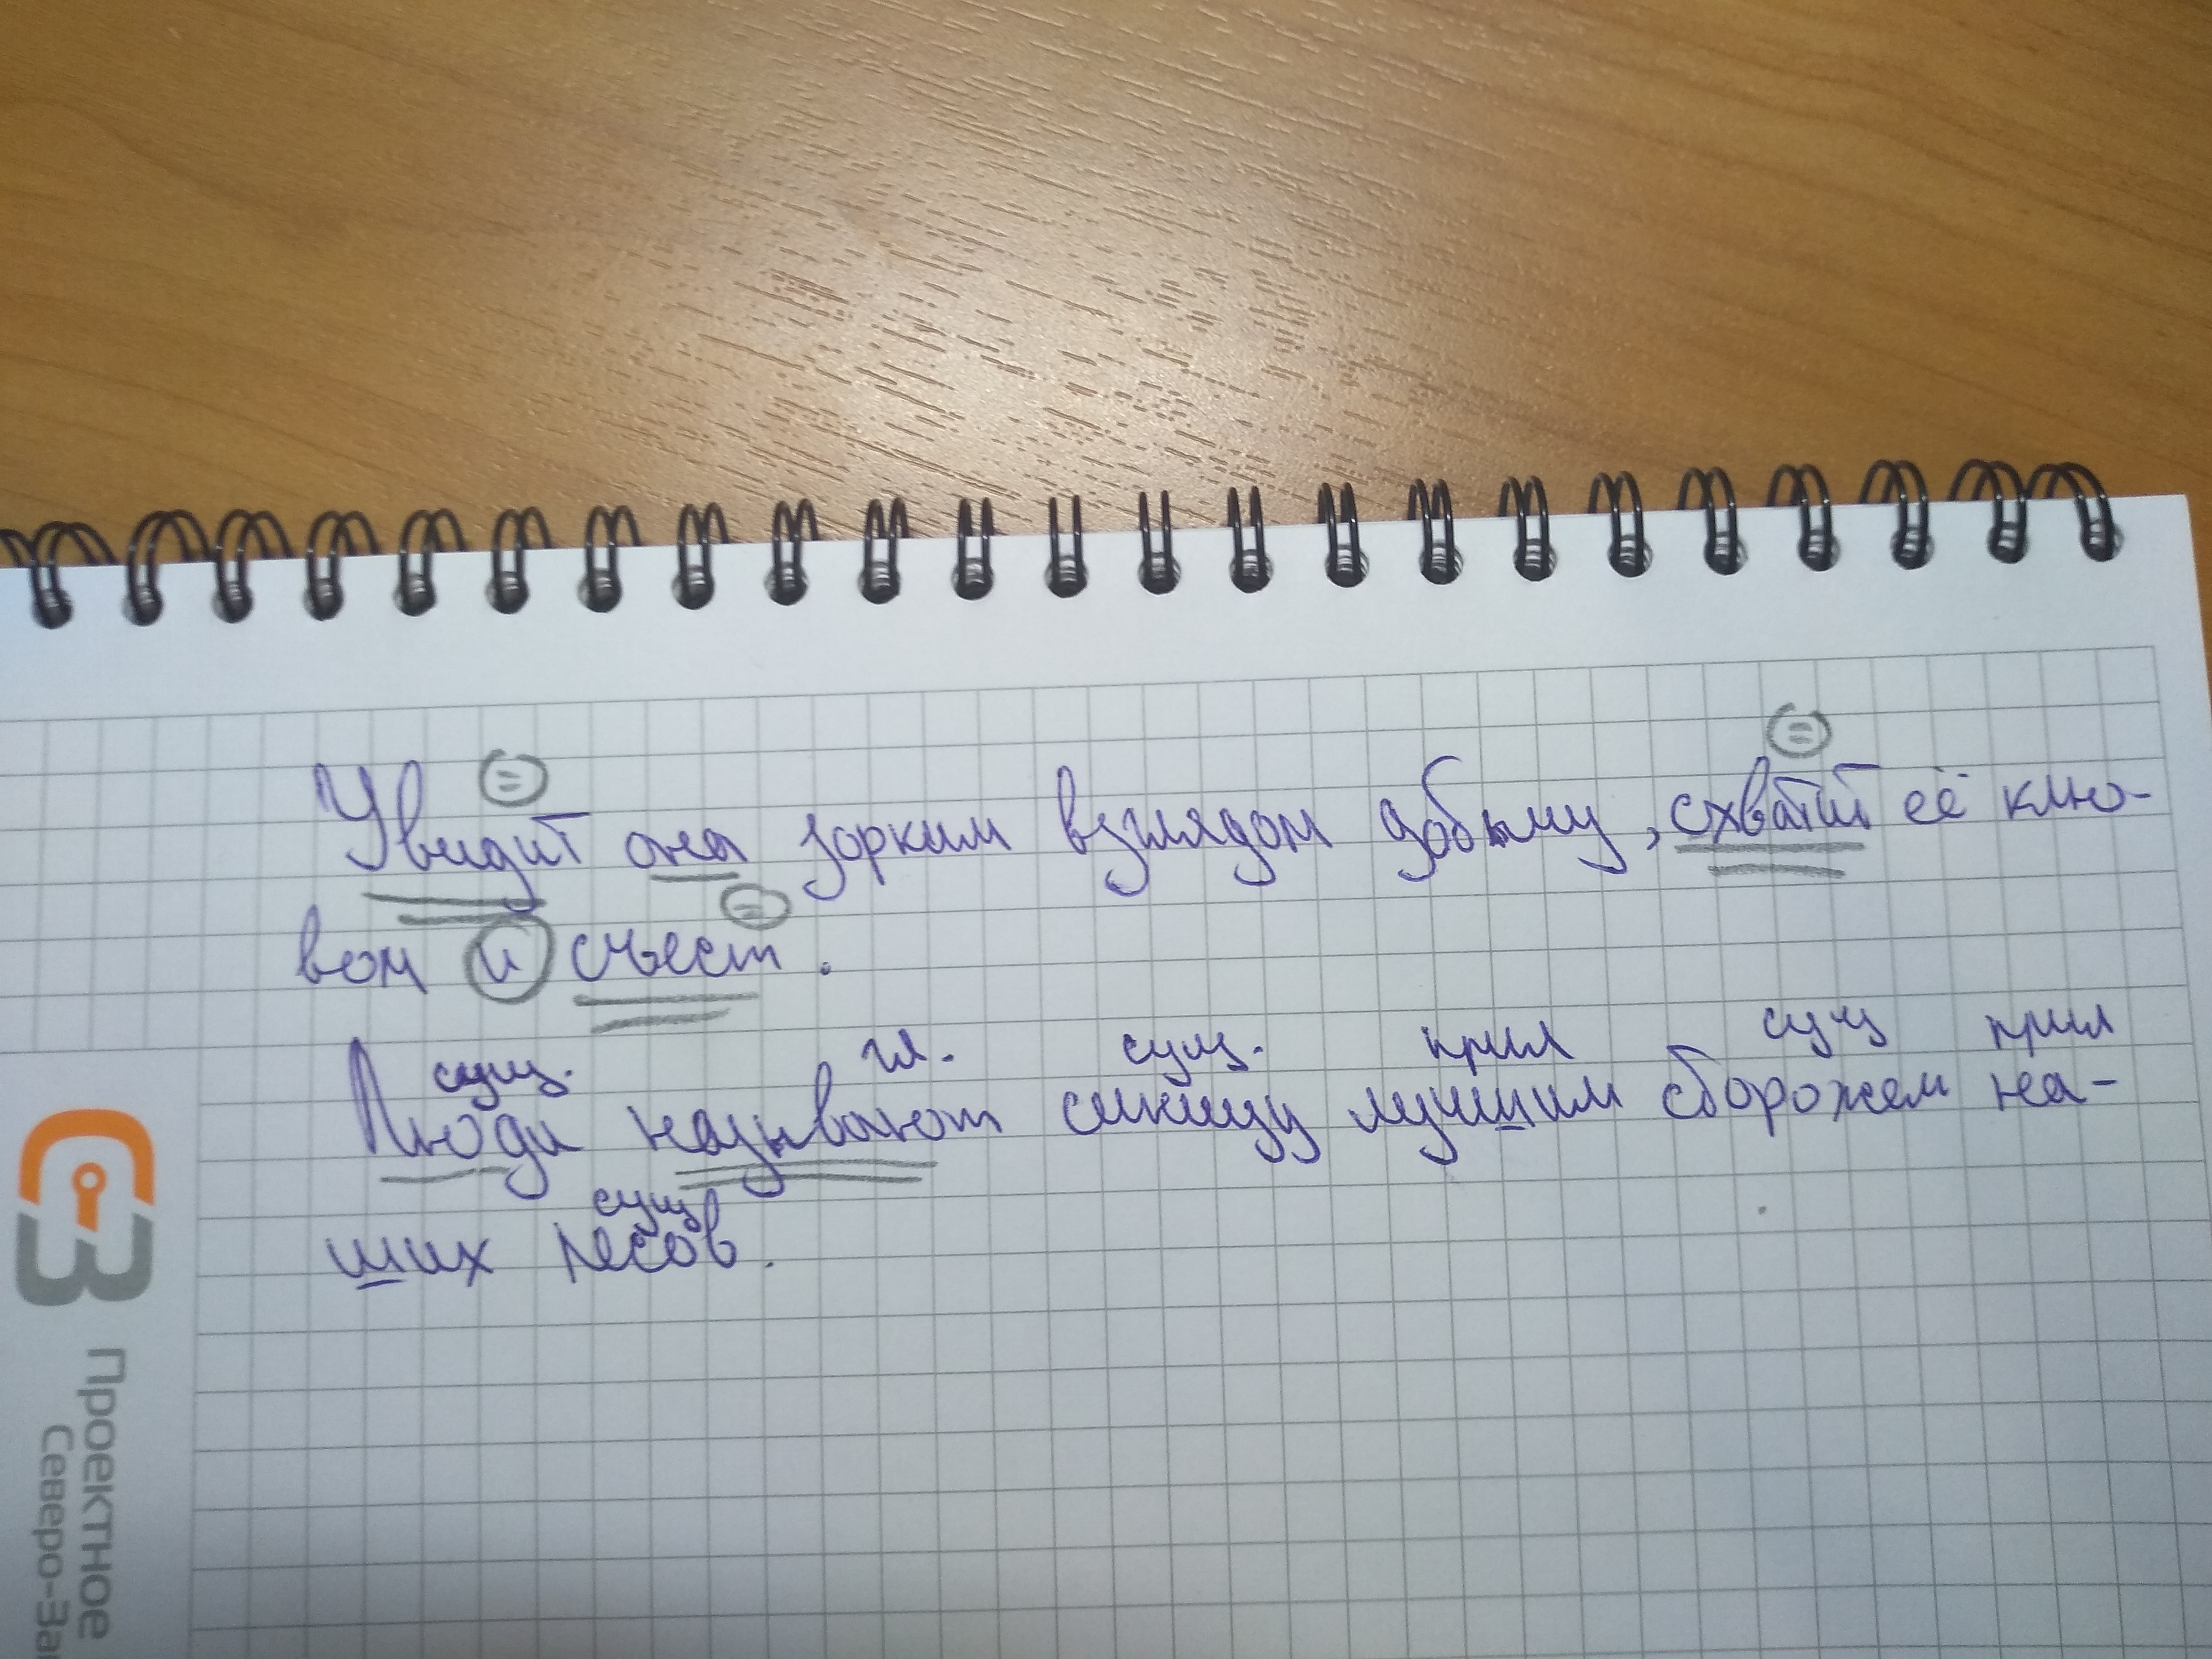 Увидит она зорким взглядом добычу, схватит её клю-
вом и съест.
сущ. гл. сущ. прил сущ прил
Люди называют синицу лучшим сторожем на-
сущ
ших лесов.
СЗ
Проектное
Северо-За